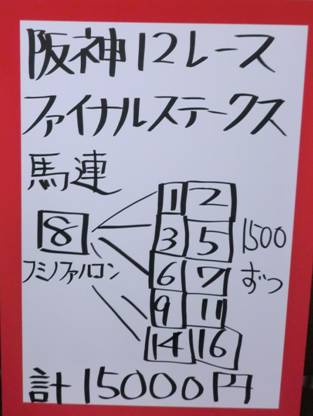 阪神12レース
ファイナルステークス
馬連
1 2
8 3 5 1500
フミノファルコン 6 7 ずつ
9 11
14 16
計15000円